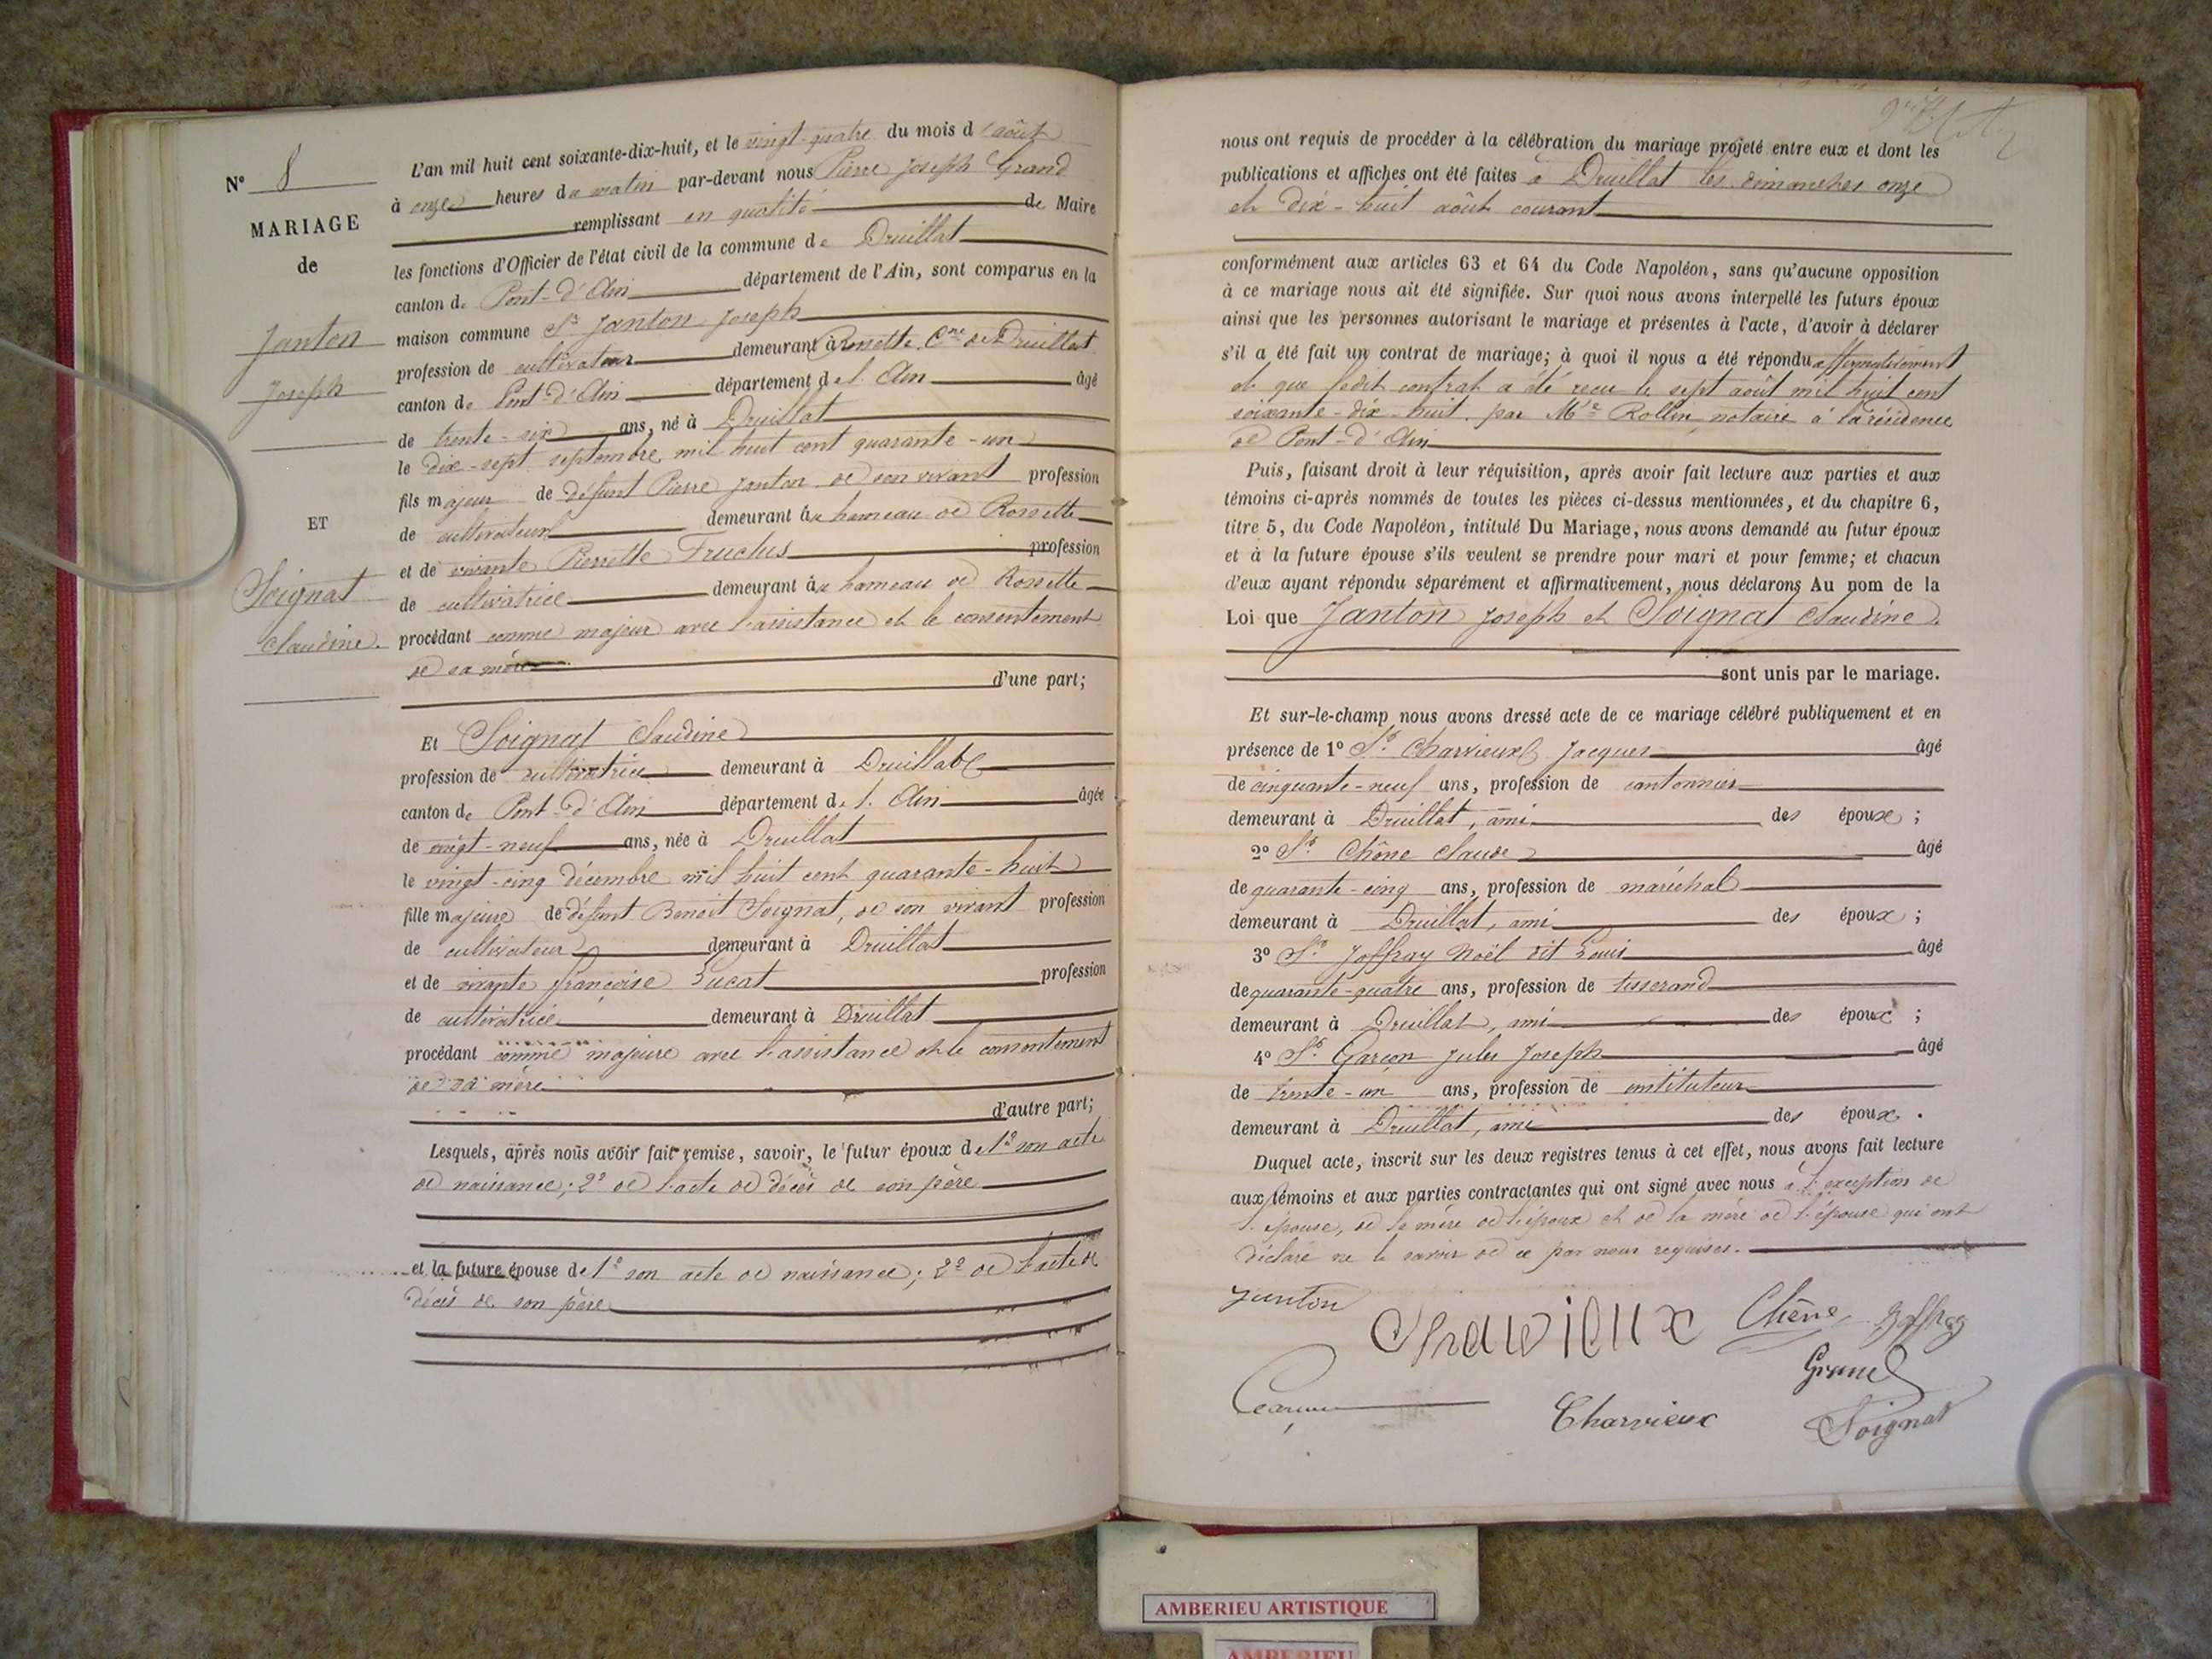 N° 8
MARIAGE
de
Janton
Joseph
ET
Soignat
Claudine.
L'an mil huit cent soixante-dix-huit, et le vingt-quatre du mois d'août
à onze heures du matin par-devant nous Pierre Joseph Grand
remplissant en qualité de Maire
les fonctions d'Officier de l'état civil de la commune de Druillat
canton de Pont-d'Ain département de l'Ain, sont comparus en la
maison commune Sr Janton Joseph
profession de cultivateur demeurant à Rossette Cne de Druillat
canton de Pont-d'Ain département de l'Ain âgé
de trente-six ans, né à Druillat
le dix-sept septembre mil huit cent quarante-un
fils majeur de défunt Pierre Janton de son vivant profession
de cultivateur demeurant au hameau de Rossette
et de vivante Pierrette Fructus profession
de cultivatrice demeurant au hameau de Rossette
procédant comme majeur avec l'assistance et le consentement
de sa mère
d'une part;
Et Soignat Claudine
profession de cultivatrice demeurant à Druillat
canton de Pont-d'Ain département de l'Ain âgée
de vingt-neuf ans, née à Druillat
le vingt-cinq décembre mil huit cent quarante-huit
fille majeure de défunt Benoit Soignat, de son vivant profession
de cultivateur demeurant à Druillat
et de vivante françoise Lucat profession
de cultivatrice demeurant à Druillat
procédant comme majeure avec l'assistance et le consentement
de sa mère
d'autre part;
Lesquels, après nous avoir fait remise, savoir, le futur époux de 1° son acte
de naissance; 2° de l'acte de décès de son père
et la future épouse de 1° son acte de naissance; 2° de l'acte de
décès de son père
nous ont requis de procéder à la célébration du mariage projeté entre eux et dont les
publications et affiches ont été faites à Druillat les dimanches onze
et dix-huit août courant
conformément aux articles 63 et 64 du Code Napoléon, sans qu'aucune opposition
à ce mariage nous ait été signifiée. Sur quoi nous avons interpellé les futurs époux
ainsi que les personnes autorisant le mariage et présentes à l'acte, d'avoir à déclarer
s'il a été fait un contrat de mariage; à quoi il nous a été répondu affirmativement
et que ledit contrat a été reçu le sept août mil huit cent
soixante-dix-huit par Mtre Rollin, notaire à la résidence
de Pont-d'Ain
Puis, faisant droit à leur réquisition, après avoir fait lecture aux parties et aux
témoins ci-après nommés de toutes les pièces ci-dessus mentionnées, et du chapitre 6,
titre 5, du Code Napoléon, intitulé Du Mariage, nous avons demandé au futur époux
et à la future épouse s'ils veulent se prendre pour mari et pour femme; et chacun
d'eux ayant répondu séparément et affirmativement, nous déclarons Au nom de la
Loi que Janton Joseph et Soignat Claudine
sont unis par le mariage.
Et sur-le-champ nous avons dressé acte de ce mariage célébré publiquement et en
présence de 1° Sr Charvieux Jacques âgé
de cinquante-neuf ans, profession de cantonnier
demeurant à Druillat, ami des époux ;
2° Sr Chêne Claude âgé
de quarante-cinq ans, profession de maréchal
demeurant à Druillat, ami des époux ;
3° Sr Joffray Noël dit Louis âgé
de quarante-quatre ans, profession de tisserand
demeurant à Druillat, ami des époux ;
4° Sr Garçon Jules Joseph âgé
de trente-un ans, profession de instituteur
demeurant à Druillat, ami des époux .
Duquel acte, inscrit sur les deux registres tenus à cet effet, nous avons fait lecture
aux témoins et aux parties contractantes qui ont signé avec nous à l'exception de
l'épouse, de la mère de l'époux et de la mère de l'épouse qui ont
déclaré ne le savoir de ce par nous requises.
Janton
Charvieux Chêne Joffray
Grand
Garçon Charvieux Soignat
AMBERIEU ARTISTIQUE
AMBERIEU